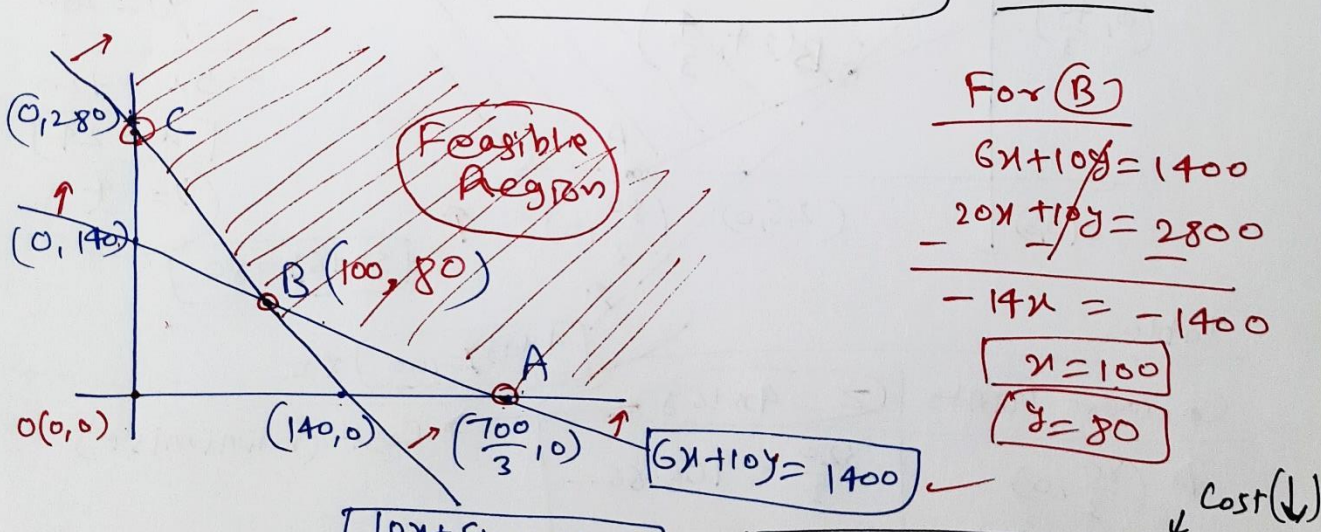 (0,280) C
Feasible
Region
(0,140)
B (100, 80)
A
O(0,0)
(140,0)
(700/3, 0)
6x+10y = 1400
For (B)
6x+10y = 1400
20x+10y = 2800
− − −
-14x = -1400
x = 100
y = 80
Cost(↓)